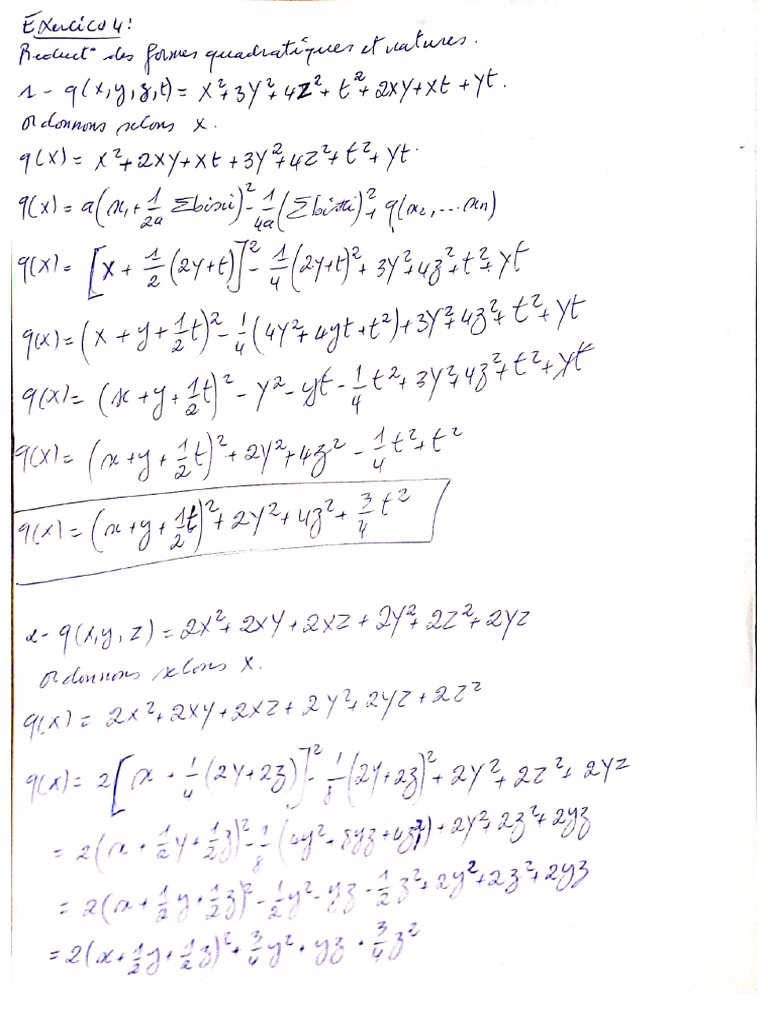 Exercice 4:
Reduct° des formes quadratiques et natures.
1- q(x,y,z,t) = x²+3y²+4z²+t²+2xy+xt+yt.
ordonnons selons x.
q(x) = x²+2xy+xt+3y²+4z²+t²+yt.
q(x) = a(x₁+1/2a Σbixi)² - 1/4a(Σbixi)²+q(x₂,...xn)
q(x) = [x+1/2(2y+t)]² - 1/4(2y+t)²+3y²+4z²+t²+yt
q(x) = (x+y+1/2t)² - 1/4(4y²+4yt+t²)+3y²+4z²+t²+yt
q(x) = (x+y+1/2t)² - y² - yt - 1/4t²+3y²+4z²+t²+yt
q(x) = (x+y+1/2t)²+2y²+4z² - 1/4t²+t²
q(x) = (x+y+1/2t)²+2y²+4z²+3/4t²
2- q(x,y,z) = 2x²+2xy+2xz+2y²+2z²+2yz
ordonnons selons x.
q(x) = 2x²+2xy+2xz+2y²+2yz+2z²
q(x) = 2[x+1/4(2y+2z)]² - 1/8(2y+2z)²+2y²+2z²+2yz
= 2(x+1/2y+1/2z)² - 1/8(4y²+8yz+4z²)+2y²+2z²+2yz
= 2(x+1/2y+1/2z)² - 1/2y² - yz - 1/2z²+2y²+2z²+2yz
= 2(x+1/2y+1/2z)²+3/4y²+yz+3/4z²